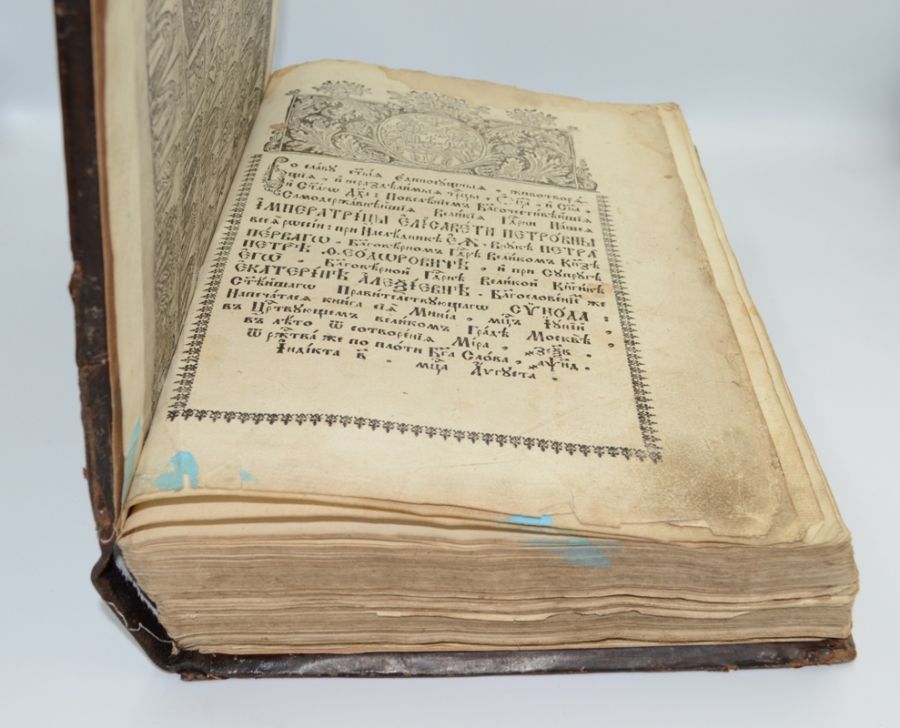 Во славу ст҃ыѧ Единосꙋщныѧ, животворѧ
щїѧ, и нераздѣлимыѧ трⷪ҇цы, Ѻц҃а, и Сн҃а,
и Ст҃агѡ Дх҃а: Повелѣнїемъ Бл҃гочестивѣйшїѧ
Самодержавнѣйшїѧ Великїѧ Гдⷭ҇рни Нашеѧ
ІМПЕРАТРИЦЫ ЕЛІСАВЕТЫ ПЕТРОВНЫ
всеѧ рѡссїи: при Наслѣдникѣ Еѧ, Внꙋкѣ ПЕТРА
ПЕРВАГѠ, Бл҃говѣрномъ Гдⷭ҇рѣ Великомъ Кн҃зѣ
ПЕТРѢ ѲЕОДѠРОВИЧѢ, и при Сꙋпрꙋгѣ
ЕГѠ, Бл҃говѣрной Гдⷭ҇рнѣ Великой Кнг҃инѣ
ЕКАТЕРИНѢ АЛЕѮІЕВНѢ, Бл҃гословенїемъ же
Ст҃ѣйшагѡ Правителствꙋющагѡ СѴНОДА:
Напечатасѧ книга сїѧ Минїа, мцⷭ҇ъ Іꙋнїй,
въ Црⷭ҇твꙋющемъ великомъ Градѣ Москвѣ
въ лѣто ѿ сотворенїѧ Мїра,
ѿ ржⷭ҇тва же по плоти Бг҃а Слова, ҂аѱн҃д,
Індікта в҃, мцⷭ҇а Аѵгꙋста.